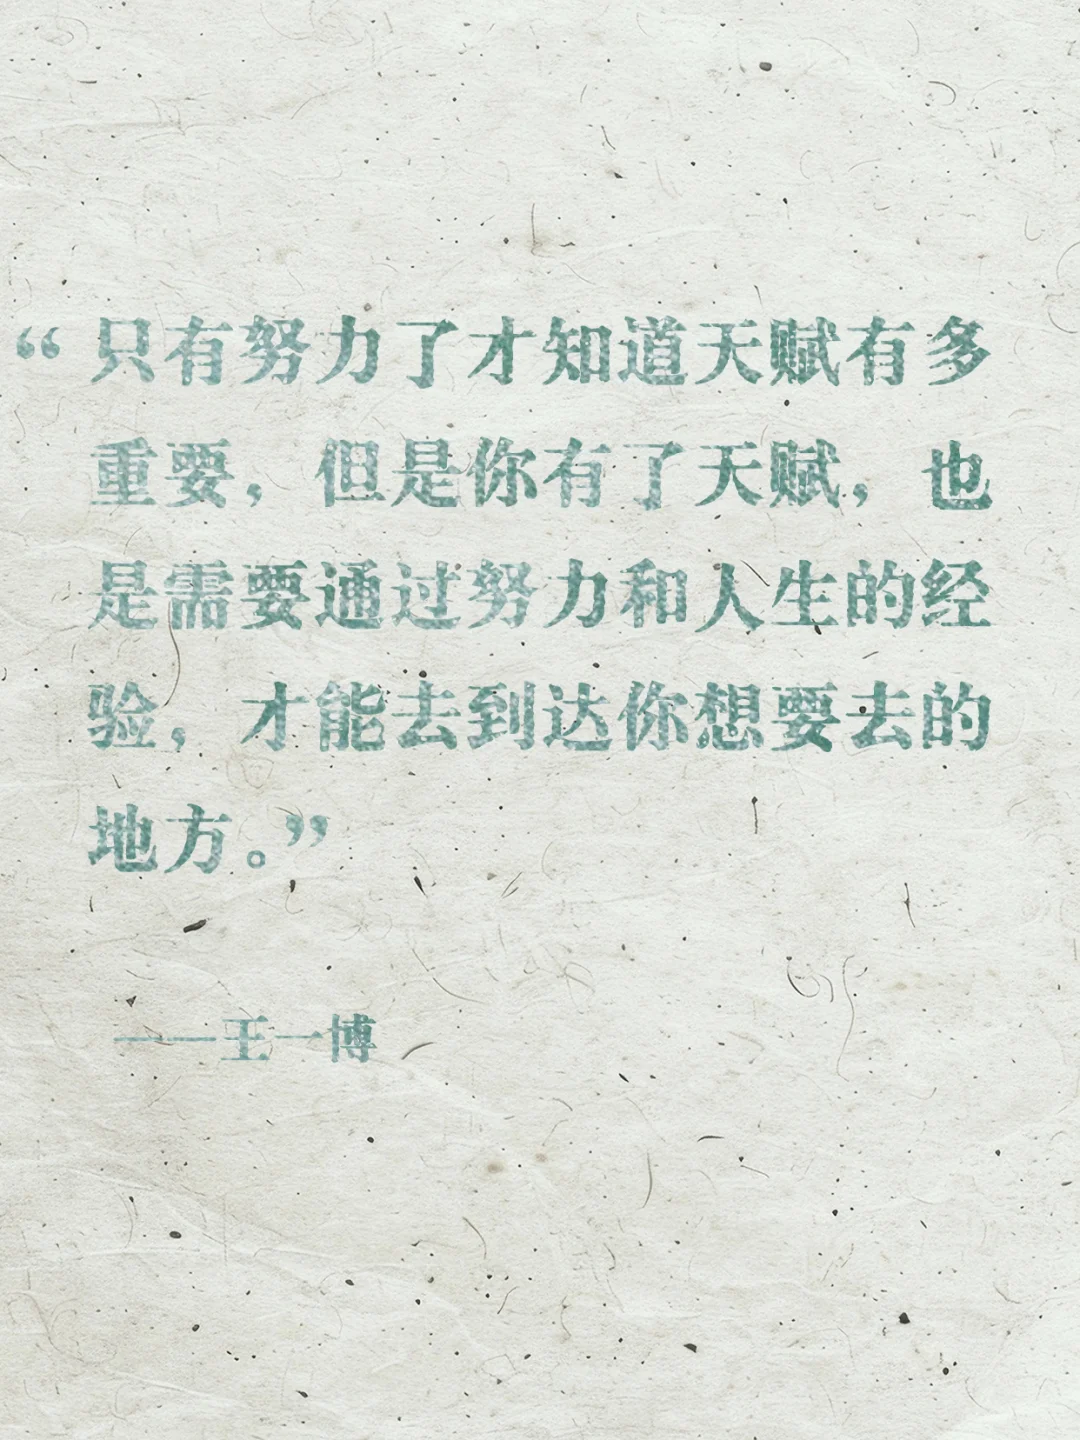 “只有努力了才知道天赋有多
重要，但是你有了天赋，也
是需要通过努力和人生的经
验，才能去到达你想要去的
地方。”
——王一博